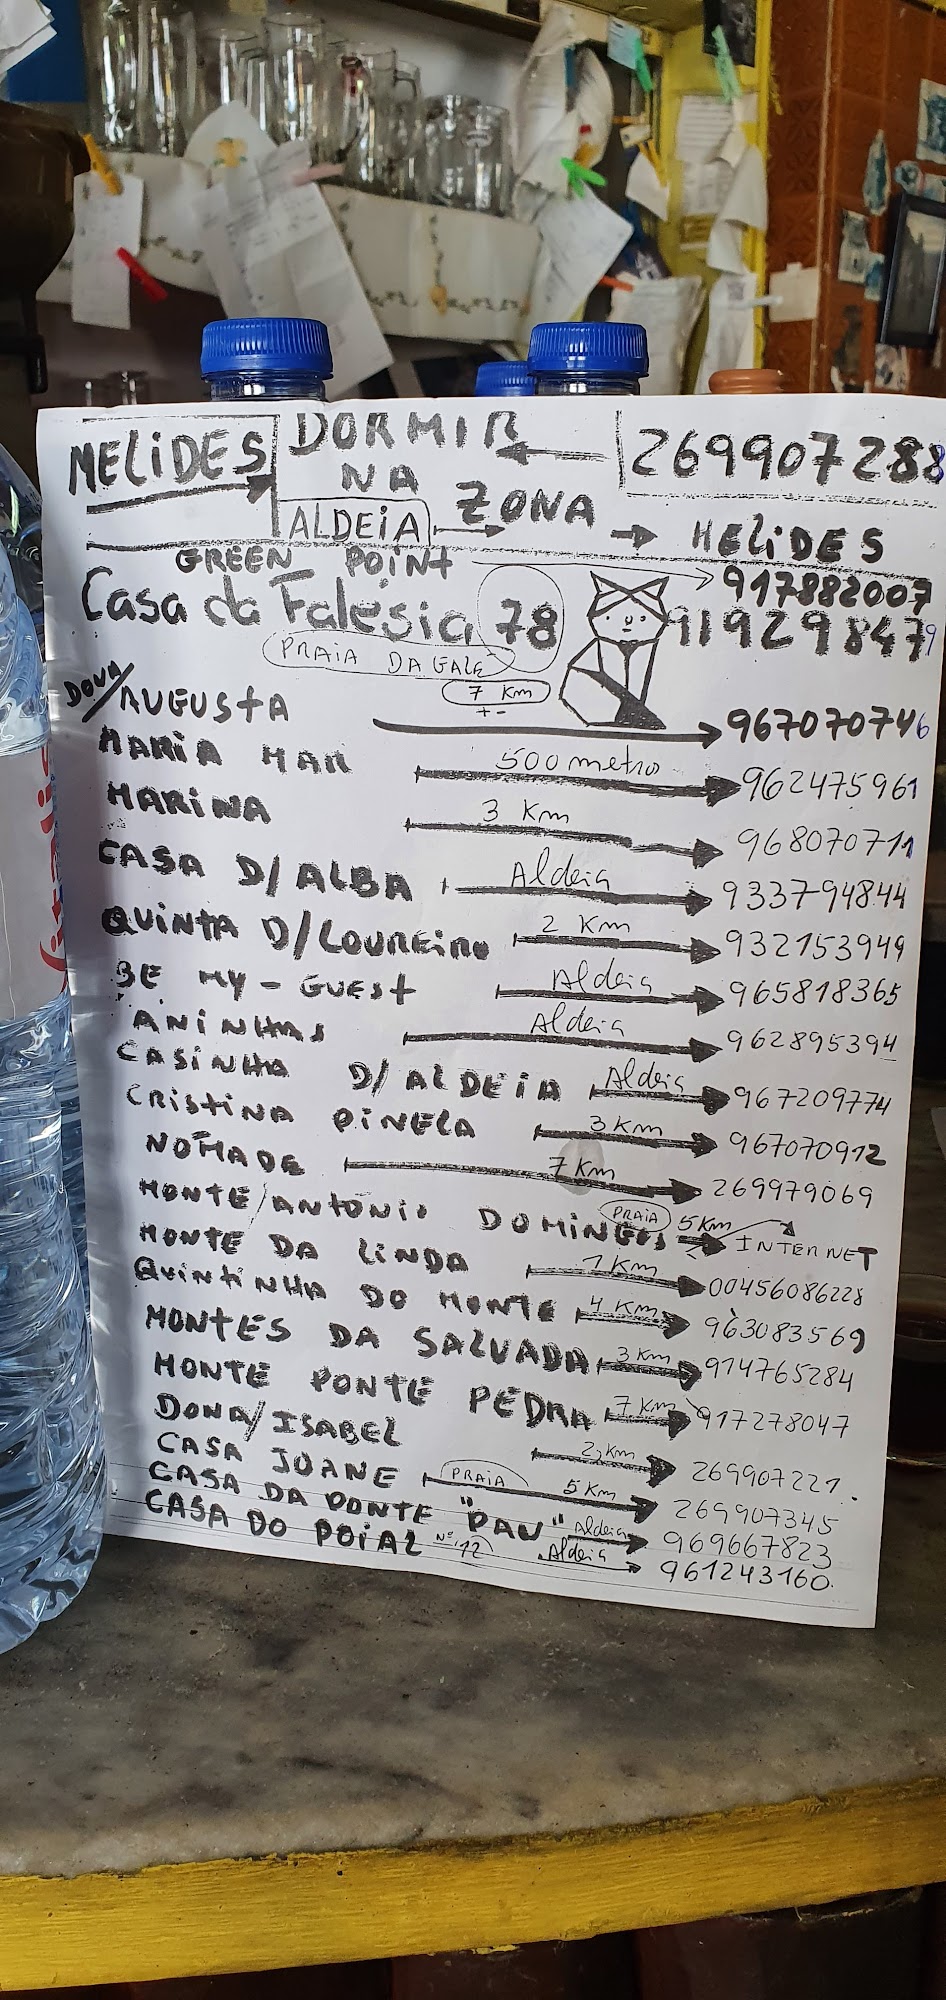 MELIDES DORMIR 269907288
NA
ALDEIA ZONA MELIDES
GREEN POINT 917882007
Casa da Falésia 78 919298479
PRAIA DA GALÉ
7 Km
+-
DONA/AUGUSTA 967070746
MARIA MAR 500 metros 962475961
MARINA 3 Km 968070711
CASA D/ALBA Aldeia 933794844
QUINTA D/LOUREIRO 2 Km 932153949
BE MY-GUEST Aldeia 965818365
ANINHAS Aldeia 962895394
CASINHA D/ALDEIA Aldeia 967209774
CRISTINA PINELA 3 Km 967070912
NOMADE 7 Km 269979069
MONTE/ANTONIO DOMINGOS PRAIA 5 Km INTERNET
MONTE DA LINDA 1 Km 00456086228
QUINTINHA DO MONTE 4 Km 963083569
MONTES DA SALVADA 3 Km 914765284
MONTE PONTE PEDRA 7 Km 917278047
DONA/ISABEL 2 Km 269907221
CASA JOANE PRAIA 5 Km 269907345
CASA DA PONTE "PAU" Aldeia 969667823
CASA DO POIAL Nº 12 Aldeia 961243160